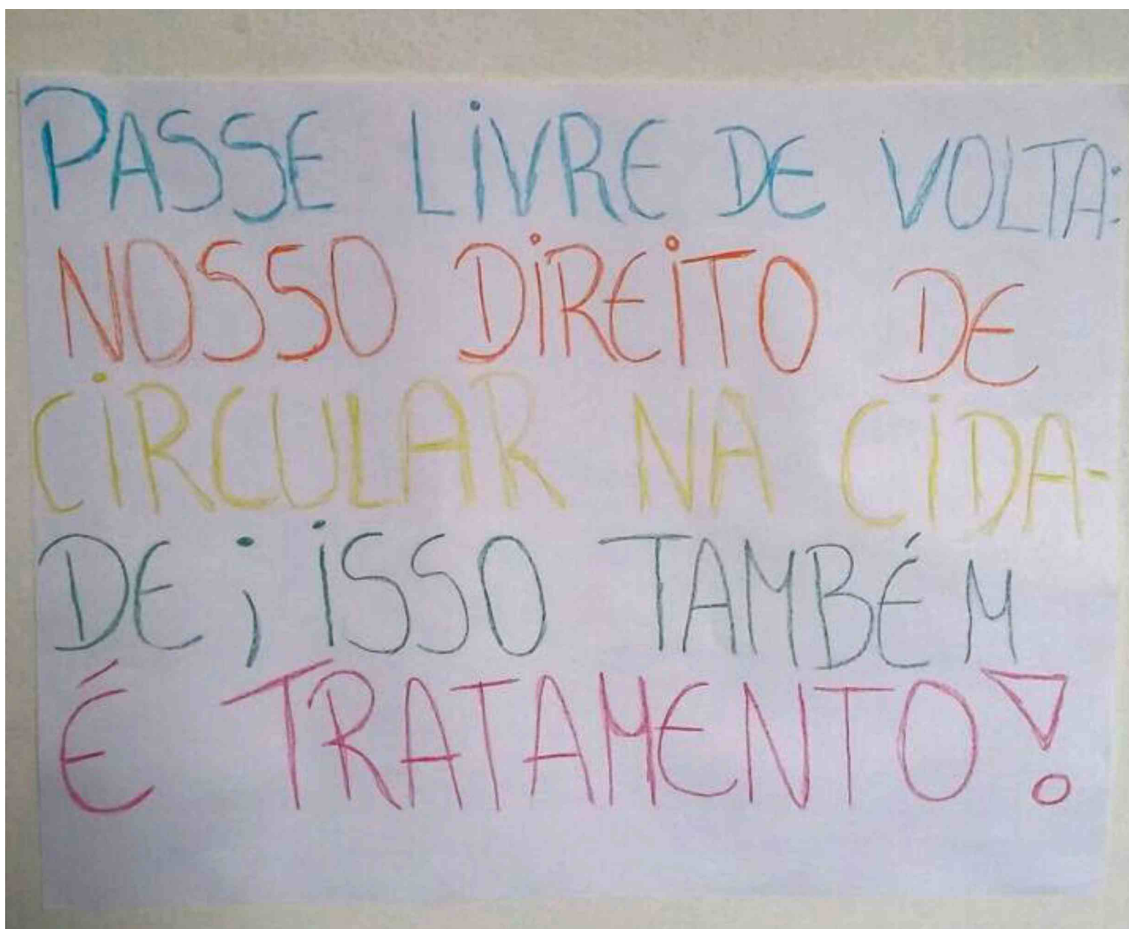 PASSE LIVRE DE VOLTA:
NOSSO DIREITO DE
CIRCULAR NA CIDA-
DE; ISSO TAMBÉM
É TRATAMENTO!